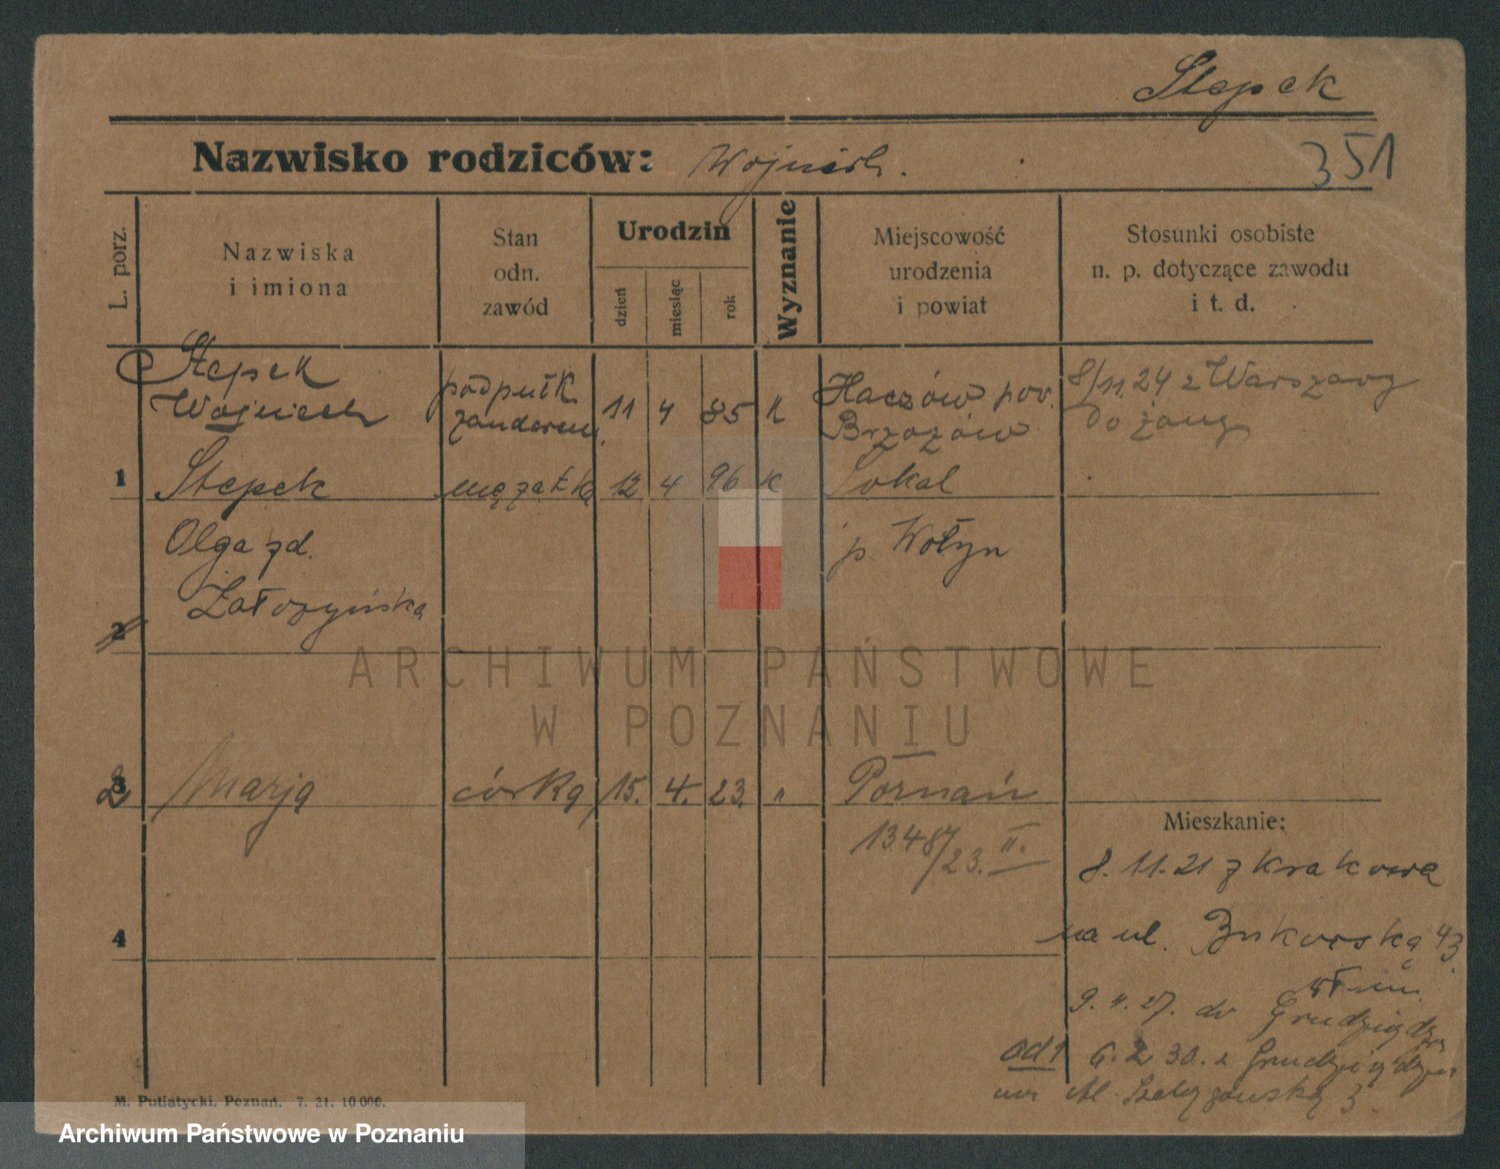 Stepek
Nazwisko rodziców: Wojciech.
351
L. porz.
Nazwiska
i imiona
Stan
odn.
zawód
Urodzin
dzień
miesiąc
rok
Wyznanie
Miejscowość
urodzenia
i powiat
Stosunki osobiste
n. p. dotyczące zawodu
i t. d.
Stepek
Wojciech
podpułk
żandarm.
11 4 85 K
Haczów pow.
Brzozów
8/11.24 z Warszawy
do żony
1 Stepek mężatka 12 4 96 K Sokal
Olga zd. p. Wołyn
Załozyńska
2
3
2 Marja córka 15. 4. 23. " Poznań
13487/23. II.
Mieszkanie:
8. 11. 21 z Krakowa
na ul. Bukowską 43
4
9. 4. 27. do Grudziądza
od 1 6. 2. 30. z Grudziądza
ul. 3
M. Putiatycki, Poznań. 7. 21. 10 000.
ARCHIWUM PAŃSTWOWE
W POZNANIU
Archiwum Państwowe w Poznaniu